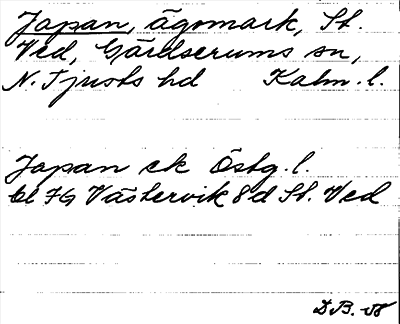 Japan, ägomark, St.
Ved, Gärdserums sn,
N. Tjusts hd Kalm. l.
Japan ek Östg. l.
bl 7G Västervik 8d St. Ved
D.B. -58